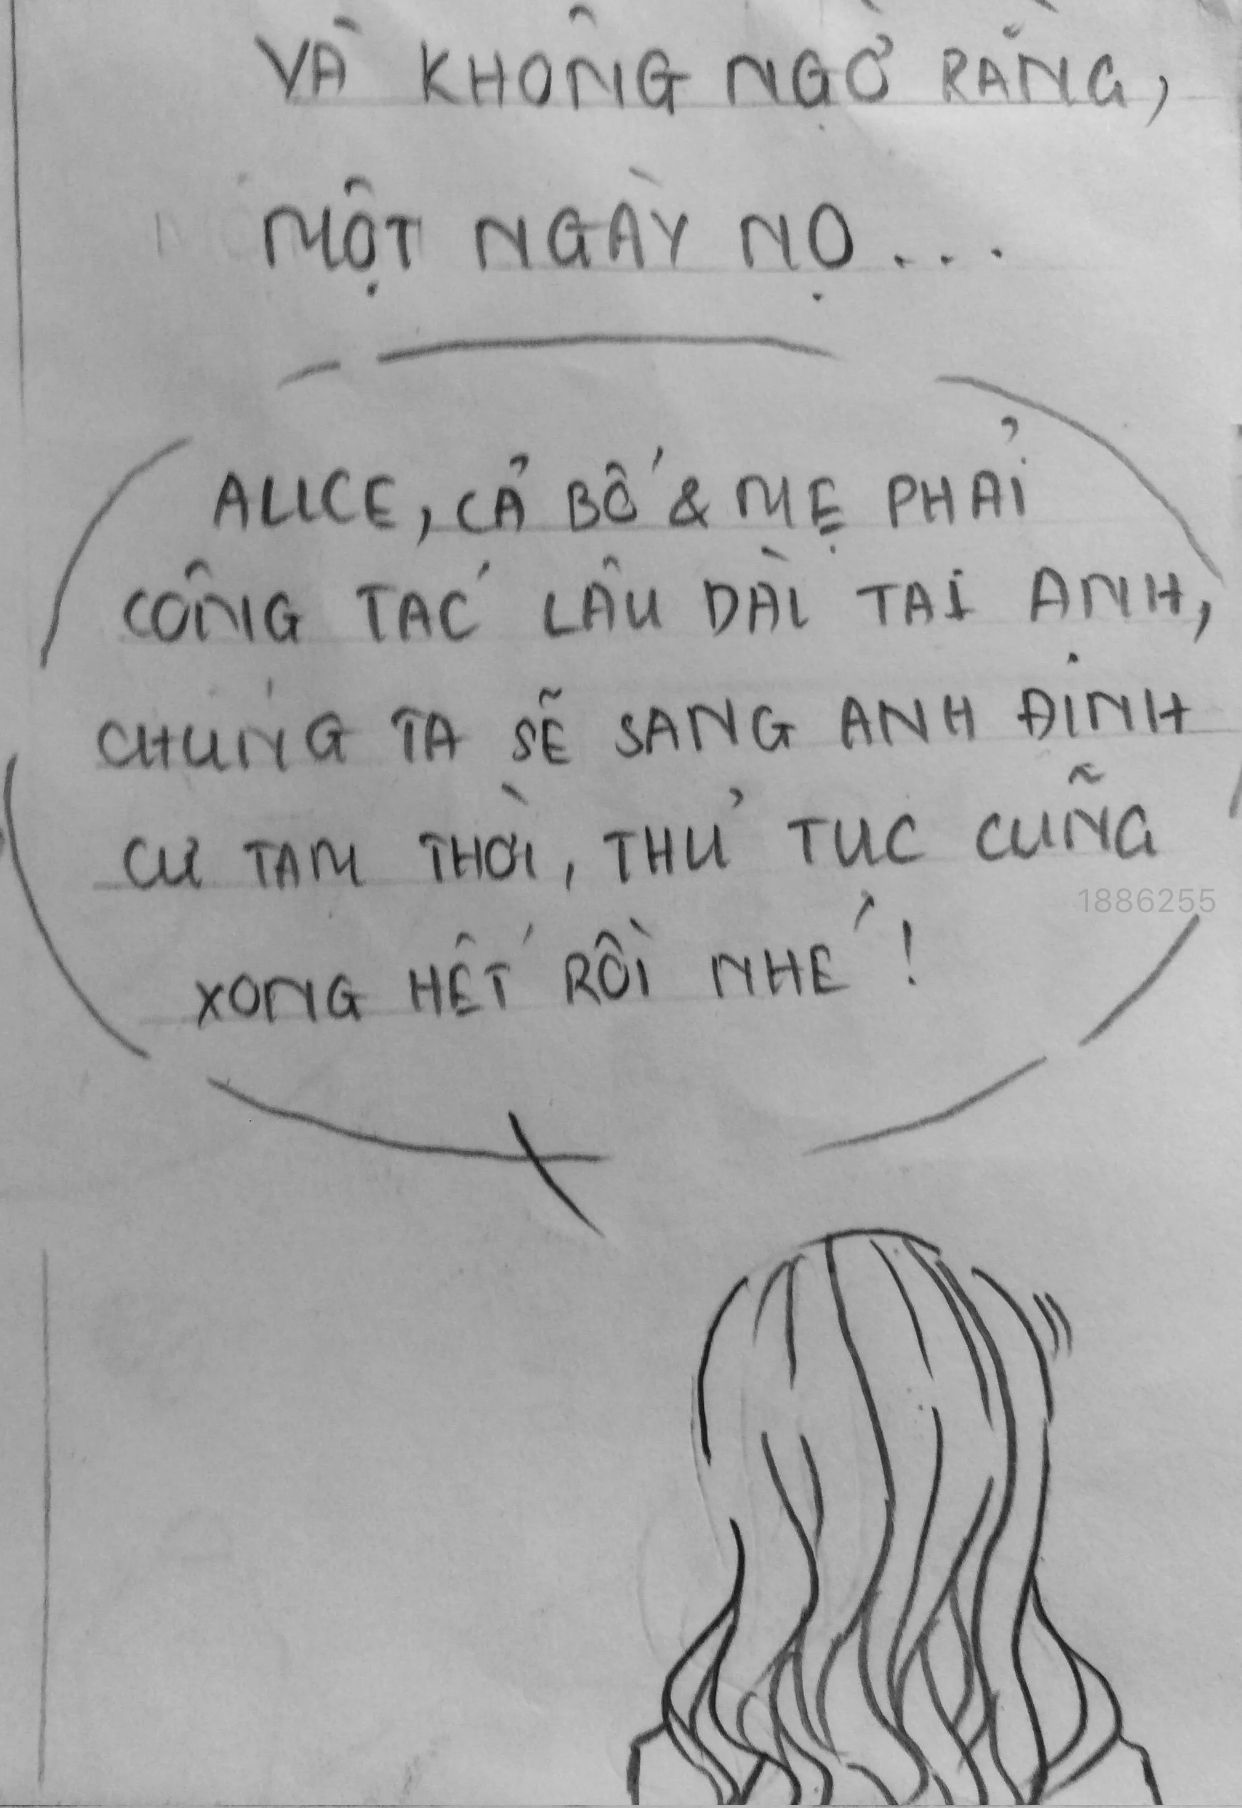 VÀ KHÔNG NGỜ RẰNG,
MỘT NGÀY NỌ...
ALICE, CẢ BỐ & MẸ PHẢI
CÔNG TÁC LÂU DÀI TẠI ANH,
CHÚNG TA SẼ SANG ANH ĐỊNH
CƯ TẠM THỜI, THỦ TỤC CŨNG
1886255
XONG HẾT RỒI NHÉ!